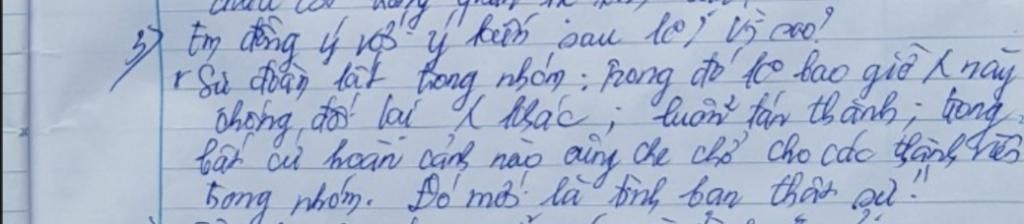 3) Em đồng ý với ý kiến sau ko? Vì sao?
"Sự đoàn kết trong nhóm: Trong đó ko bao giờ λ này
chống đối lại λ khác; luôn² tán thành; trong
bất cứ hoàn cảnh nào cũng che chở cho các thành viên
trong nhóm. Đó mới là tình bạn thân sự."